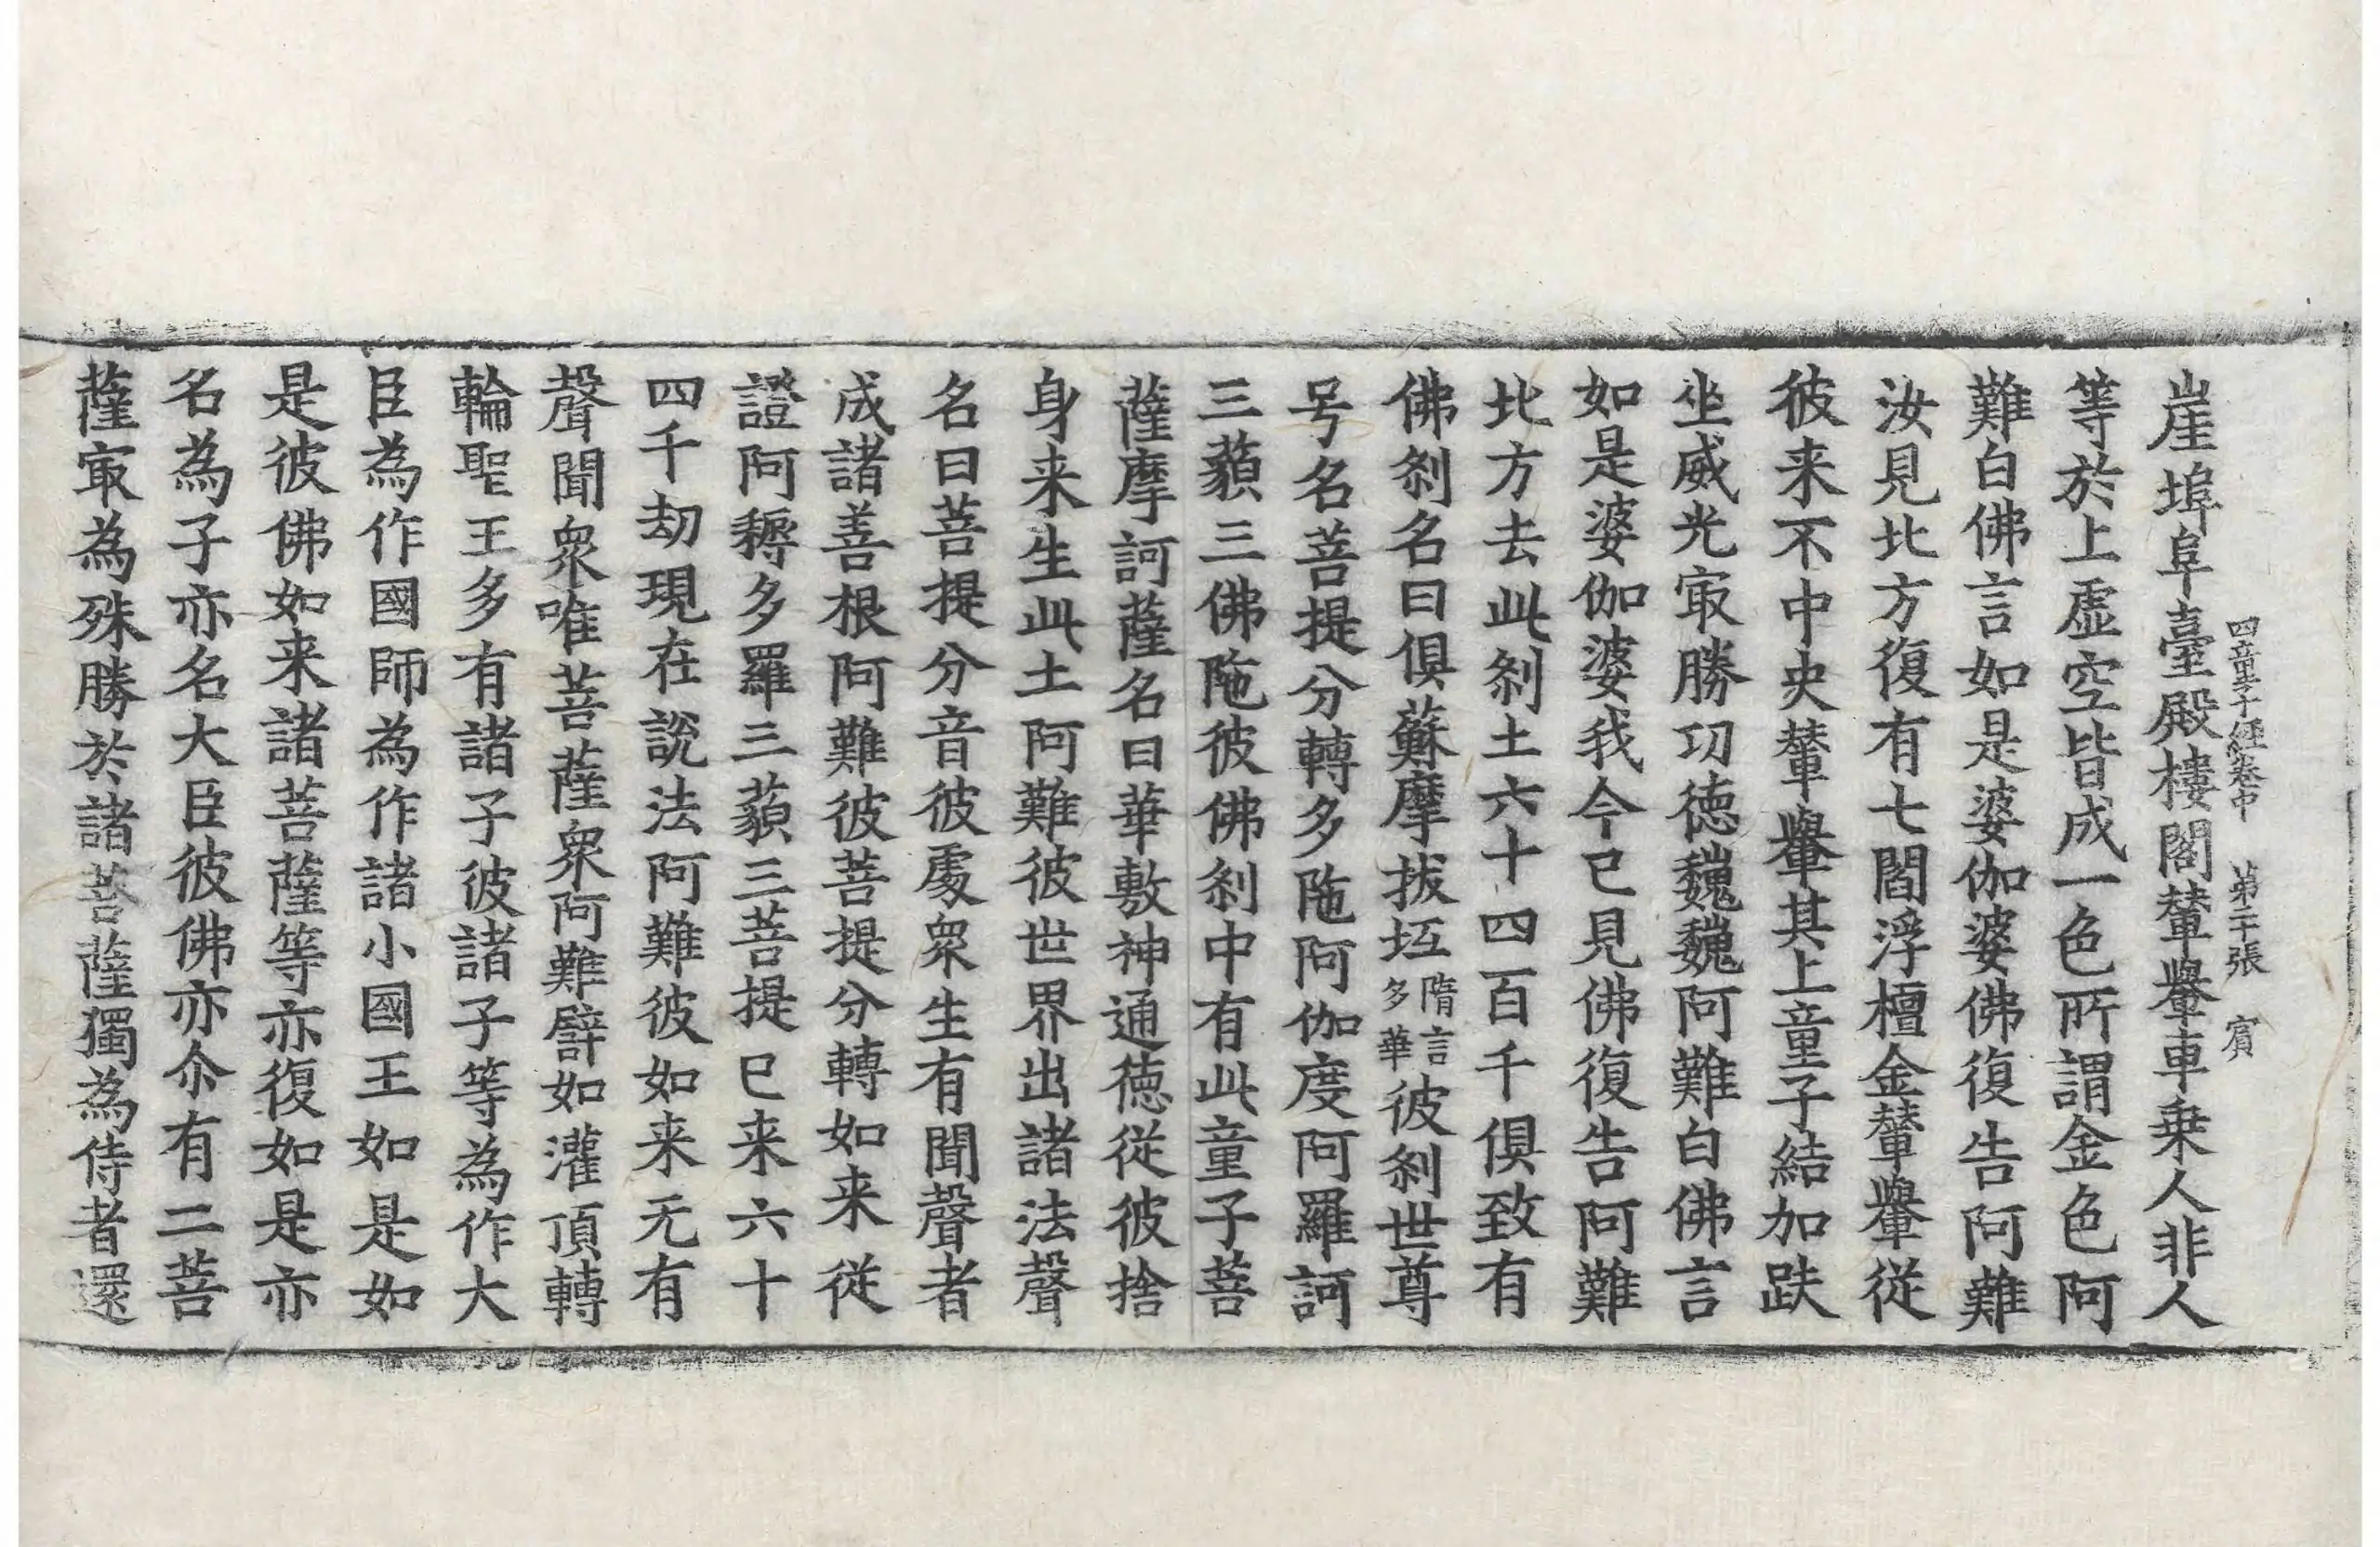 崖埠阜臺殿樓閣輦轝車乗人非人
四童子經卷中　第二十張　賓
等於上虛空皆成一色所謂金色阿
難白佛言如是婆伽婆佛復告阿難
汝見北方復有七閻浮檀金輦轝從
彼来不中央輦轝其上童子結加趺
坐威光㝡勝功徳巍巍阿難白佛言
如是婆伽婆我今已見佛復告阿難
北方去此刹土六十四百千俱致有
佛刹名曰俱蘇摩拔㘰隋言多華彼刹世尊
号名菩提分轉多陁阿伽度阿羅訶
三藐三佛陁彼佛刹中有此童子菩
薩摩訶薩名曰華敷神通徳從彼捨
身来生此土阿難彼世界出諸法聲
名曰菩提分音彼處衆生有聞聲者
成諸善根阿難彼菩提分轉如来從
證阿耨多羅三藐三菩提已来六十
四千劫現在說法阿難彼如来无有
聲聞衆唯菩薩衆阿難譬如灌頂轉
輪聖王多有諸子彼諸子等為作大
臣為作國師為作諸小國王如是如
是彼佛如来諸菩薩等亦復如是亦
名為子亦名大臣彼佛亦尒有二菩
薩㝡為殊勝於諸菩薩獨為侍者還